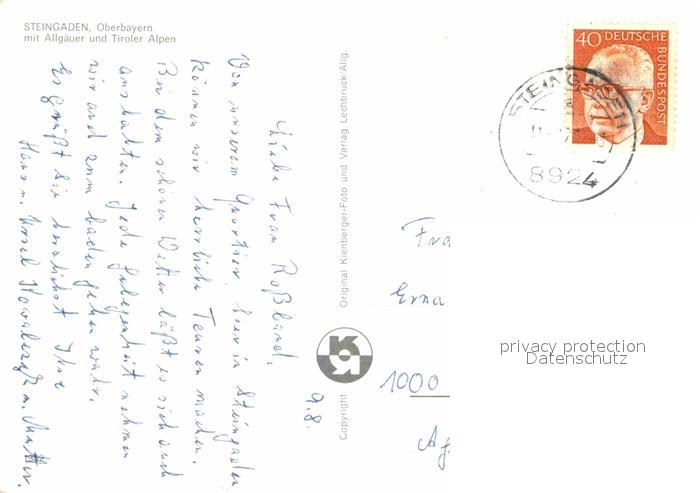 STEINGADEN, Oberbayern
mit Allgäuer und Tiroler Alpen
Liebe Frau Roßland.
Von unserem Quartier, hier in Steingaden
können wir herrliche Touren machen.
Bei dem schönen Wetter läßt es sich auch
aushalten. Jede Gelegenheit nehmen
wir auch zum baden gehen wahr.
Es grüßt Sie herzlichst Ihre
Hans u. Ursel u. Mutter.
9.8.
Original Kienberger-Foto und Verlag Lechbruck/Allg.
Copyright
40 DEUTSCHE BUNDESPOST
STEINGADEN
8924
Fra
Erna
1000
privacy protection
Datenschutz